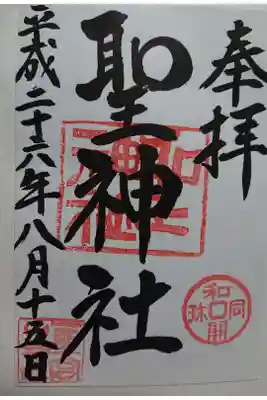 奉拝
聖神社
和同開珎
平成二十六年八月十五日